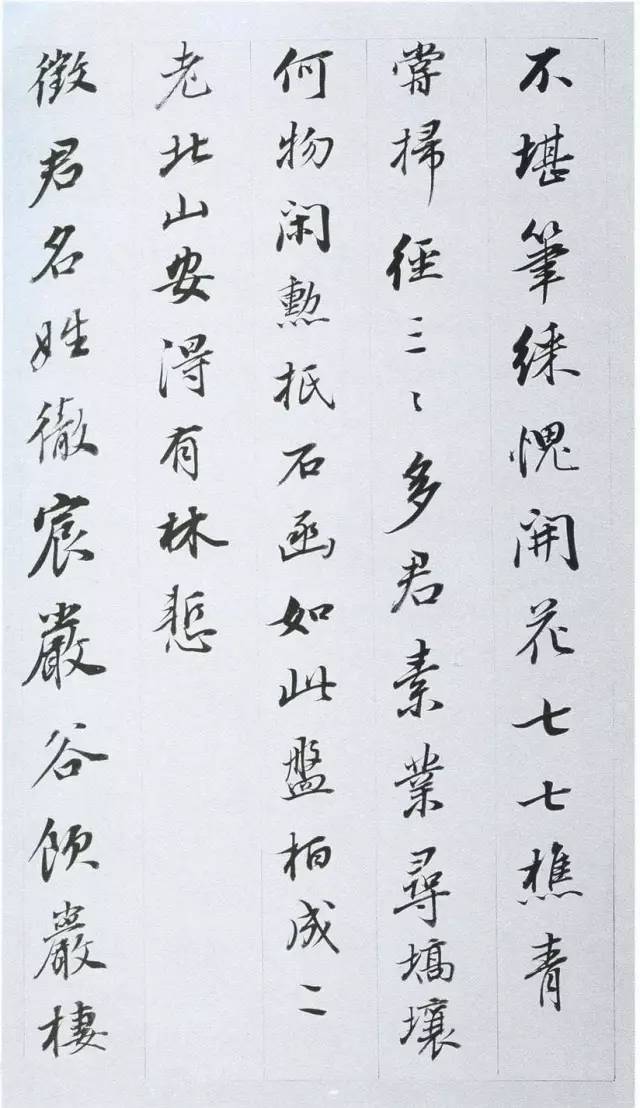 不堪筆綵愧開花七七樵青
嘗掃徑三〻多君素業尋塙壤
何物閑勲抵石函如此盤柏成二
老北山安得有林慙
徵君名姓徹宸嚴谷飲巖棲